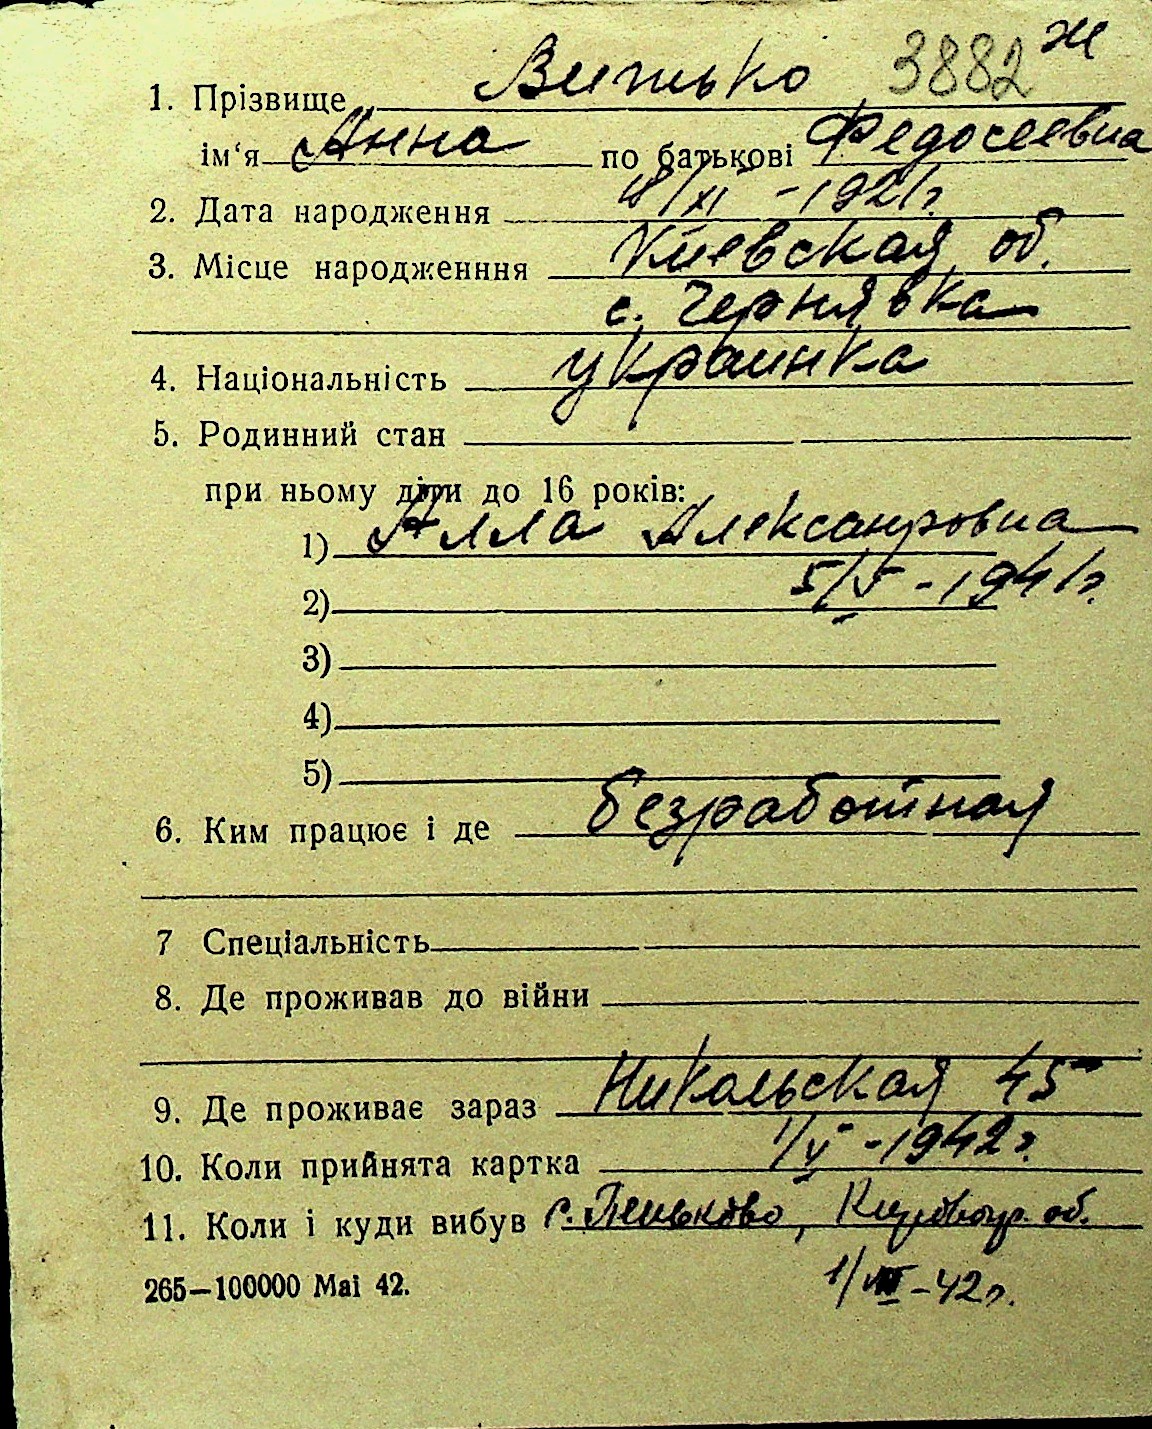 3882 ж
1. Прізвище Витько
ім'я Анна по батькові Федосеевна
2. Дата народження 18/XI - 1921г.
3. Місце народженння Киевская об.
с. Чернявка
4. Національність украинка
5. Родинний стан
при ньому діти до 16 років:
1) Алла Александровна
2) 5/V - 1941г.
3)
4)
5)
6. Ким працює і де безработная
7 Спеціальність
8. Де проживав до війни
9. Де проживає зараз Никольская 45
10. Коли прийнята картка 1/V - 1942г.
11. Коли і куди вибув с. об.
265—100000 Mai 42. 1/VIII - 42г.